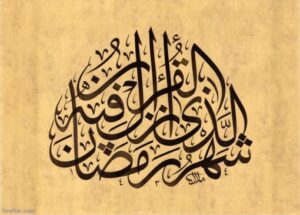 شهر رمضان
الذي أنزل فيه
القرآن